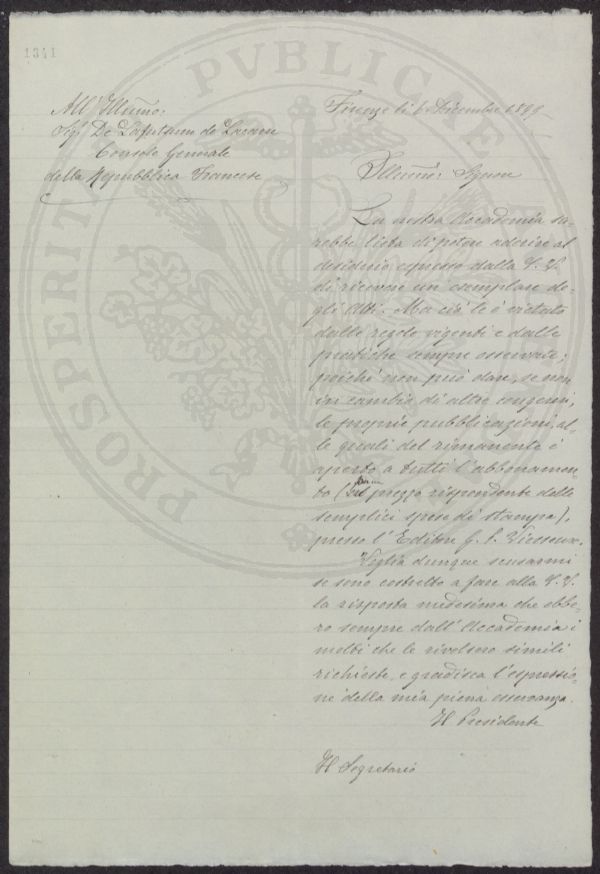 1341
PROSPERITATI PVBLICAE
All' Illmo:
Sigr De
Console Generale
della Repubblica Francese
Firenze li 6 Dicembre
Illmo: Signore
La nostra Accademia sa-
rebbe lieta di potere aderire al
desiderio espresso dalla V. S.
di ricevere un esemplare de-
gli Atti. Ma ciò le è vietato
dalle regole vigenti e dalle
pratiche sempre osservate;
poiché non può dare, se non
in cambio di altre congeneri,
le proprie pubblicazioni, al-
le quali del rimanente è
aperto a tutti l'abbonamen-
to ( prezzo rispondente alle
semplici spese di stampa),
presso l' Editore G. P. Vieusseux.
Voglia dunque scusarmi
se sono costretto a fare alla V. S.
la risposta medesima che ebbe-
ro sempre dall' Accademia i
molti che le rivolsero simili
richieste, e gradisca l'espressio-
ne della mia piena osservanza.
Il Presidente
Il Segretario